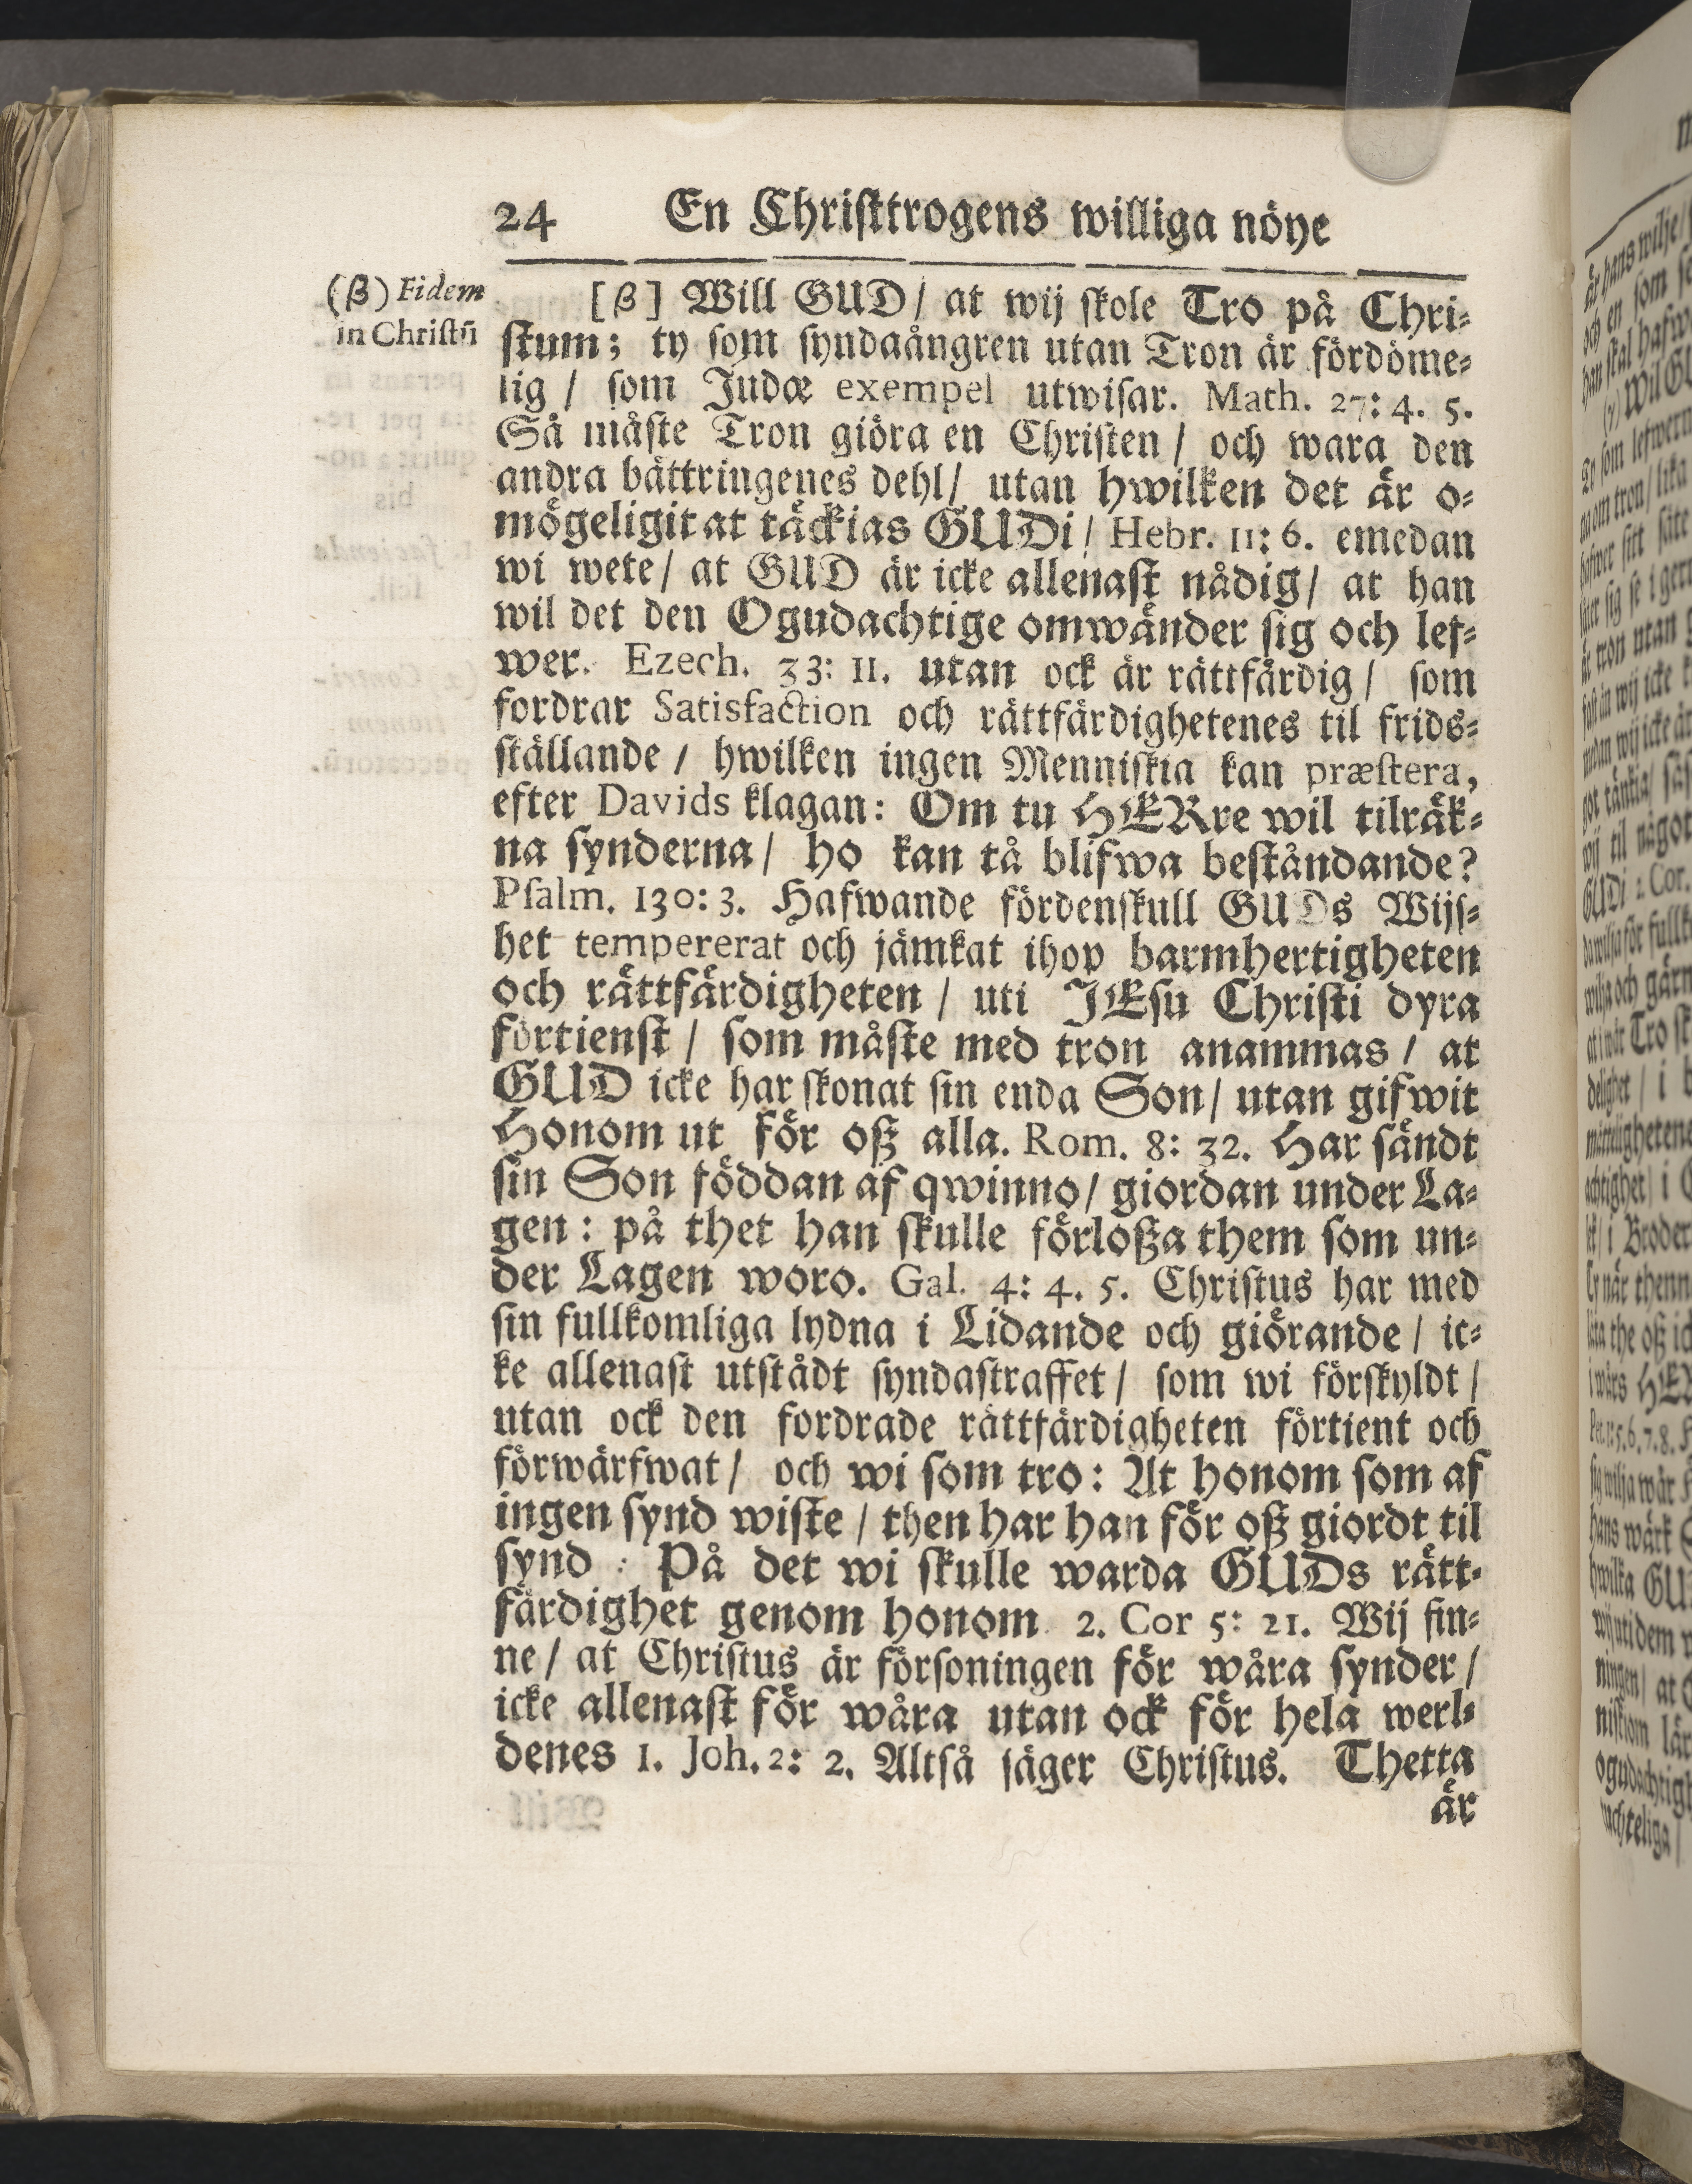 24 En Christtrogens williga nöye
(β) Fidem
in Christū
[β] Will GUD / at wij skole Tro på Chri-
stum; ty som syndaångren utan Tron är fördöme-
lig / som Judæ exempel utwisar. Math. 27: 4. 5.
Så måste Tron giöra en Christen / och wara den
andra bättringenes dehl / utan hwilken det är o-
mögeligit at täckias GUDi / Hebr. 11: 6. emedan
wi wete / at GUD är icke allenast nådig / at han
wil det den Ogudachtige omwänder sig och lef-
wer. Ezech. 33: 11. utan ock är rättfärdig / som
fordrar Satisfaction och rättfärdighetenes til frids-
ställande / hwilken ingen Menniskia kan præstera,
efter Davids klagan: Om tu HERre wil tilräk-
na synderna / ho kan tå blifwa beståndande?
Psalm. 130: 3. Hafwande fördenskull GUDs Wijs-
het tempererat och jämkat ihop barmhertigheten
och rättfärdigheten / uti JEsu Christi dyra
förtienst / som måste med tron anammas / at
GUD icke har skonat sin enda Son / utan gifwit
Honom ut för oß alla. Rom. 8: 32. Har sändt
sin Son föddan af qwinno / giordan under La-
gen: på thet han skulle förloßa them som un-
der Lagen woro. Gal. 4: 4. 5. Christus har med
sin fullkomliga lydna i Lidande och giörande / ic-
ke allenast utstådt syndastraffet / som wi förskyldt /
utan ock den fordrade rättfärdigheten förtient och
förwärfwat / och wi som tro: At honom som af
ingen synd wiste / then har han för oß giordt til
synd: På det wi skulle warda GUDs rätt-
färdighet genom honom. 2. Cor 5: 21. Wij fin-
ne / at Christus är försoningen för wåra synder /
icke allenast för wåra utan ock för hela werl-
denes 1. Joh. 2: 2. Altså säger Christus. Thetta
är